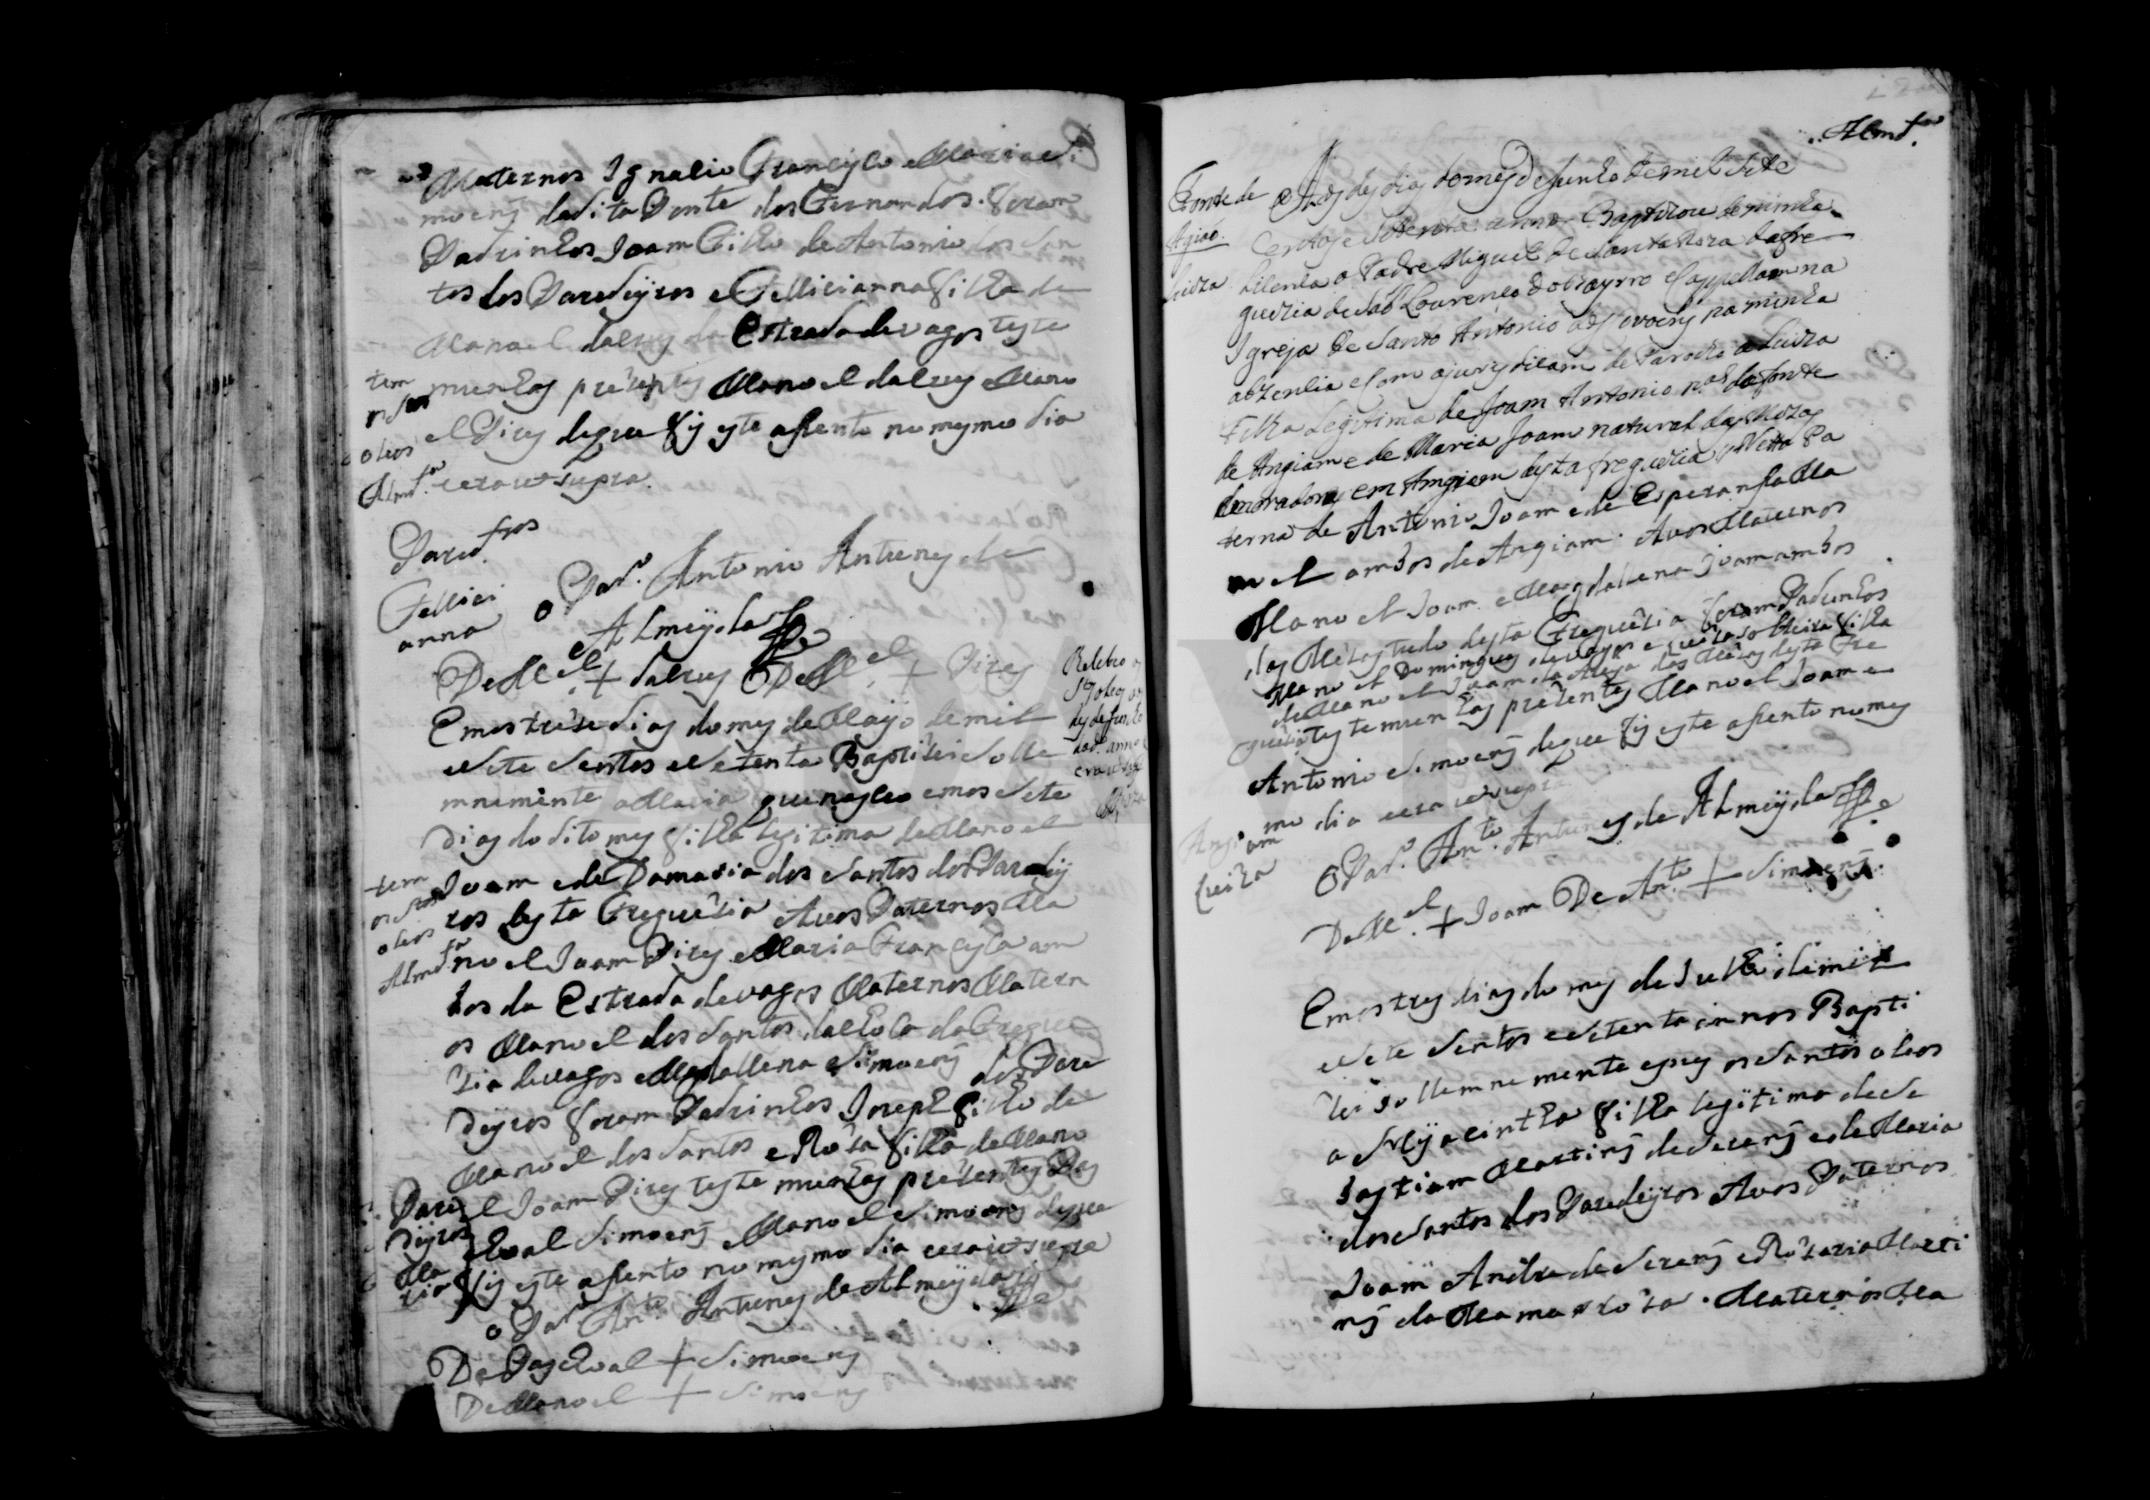 Maternos Ignacio Francisco e Maria Si
moens da dita Ponte dos Fernandos. foram
Padrinhos Joam Filho de Antonio dos San
tos dos Paredeyros e Felliciana filha de
Manoel da Cruz da Estrada de vagos teste
munhas prezentes Manoel da Cruz e Mano
el Pires de que fis este asento no mesmo dia
era ut supra.
tem
os san
oleos
Almd.ª
Pared.ros
Fellici
anna
o Par.º Antonio Antunes de
Almeyda
De M.el + da Cruz De M.el + Pires
Em os treze dias do mes de Mayo de mil
e sete sentos e setenta Baptizei solle
mnemente a Maria que nasceo em os sete
dias do dito mes filha legitima de Manoel
Joam e de Damazia dos Santos dos Paredey
ros desta Freguezia Avos Paternos Ma
noel Joam Pires e Maria Francisca am
bos da Estrada de vagos Maternos Matern
os Manoel dos Santos da
zia de vagos e Magdallena Simoens dos Pare
deyros foram Padrinhos Joseph filho de
Manoel dos Santos e Roza filha de Mano
el Joam Pires teste munhas prezentes Pas
choal Simoens e Manoel Simoens de que
fis este asento no mesmo dia era ut supra
tem
os san
oleos
Almd.ª
Pare
deyros
Ma
ria
o Par.º An.to Antunes de Almeyda
De Paschoal + Simoens
De Manoel + Simoens
Almd.ª
Fonte de
Agiao.
Luiza
Aos des dias do mes de Junho de mil Sete
Centos e Setenta annos Baptizou de minha
licencia o Padre Miguel de Santa Roza da fre
guezia de Saõ Lourenco do Bayrro e Cappellam na
Igreja de Santo Antonio dos Covoens na minha
abzencia e com a jurisdicam de Parocho a Luiza
Filha Legitima de Joam Antonio n.al da fonte
de Angiam e de Maria Joam natural das Mezas
e moradores em Angiam desta freguezia Netta Pa
terna de Antonio Joam e de Esperansa Ma
noel ambos de Angiam. Avos Maternos
Manoel Joam e Magdallena Joam ambos
das Mezas tudo desta Freguezia foram Padrinhos
Manoel Domingues de vagos e Luiza solteira filha
de Manoel Joam da das Mezas desta Fre
guezia teste munhas prezentes Manoel Joam e
Antonio Simoens de que fis este asento no mes
mo dia era ut supra
Angi
am
Luiza
O Par.º An.to Antunes de Almeyda
De M.el + Joam De An.to + Simoens.
Em os tres dias do mes de Julho de mil
e sete sentos e setenta annos Bapti
zei sollemnemente e pus os santos oleos
a Hyacintha filha legitima de Se
bastiam Martins de Serens e de Maria
dos Santos dos Paredeyros Avos Paternos
Joam Andre de Serens e Rozaria Marti
ns da Mama rroza. Maternos Ma